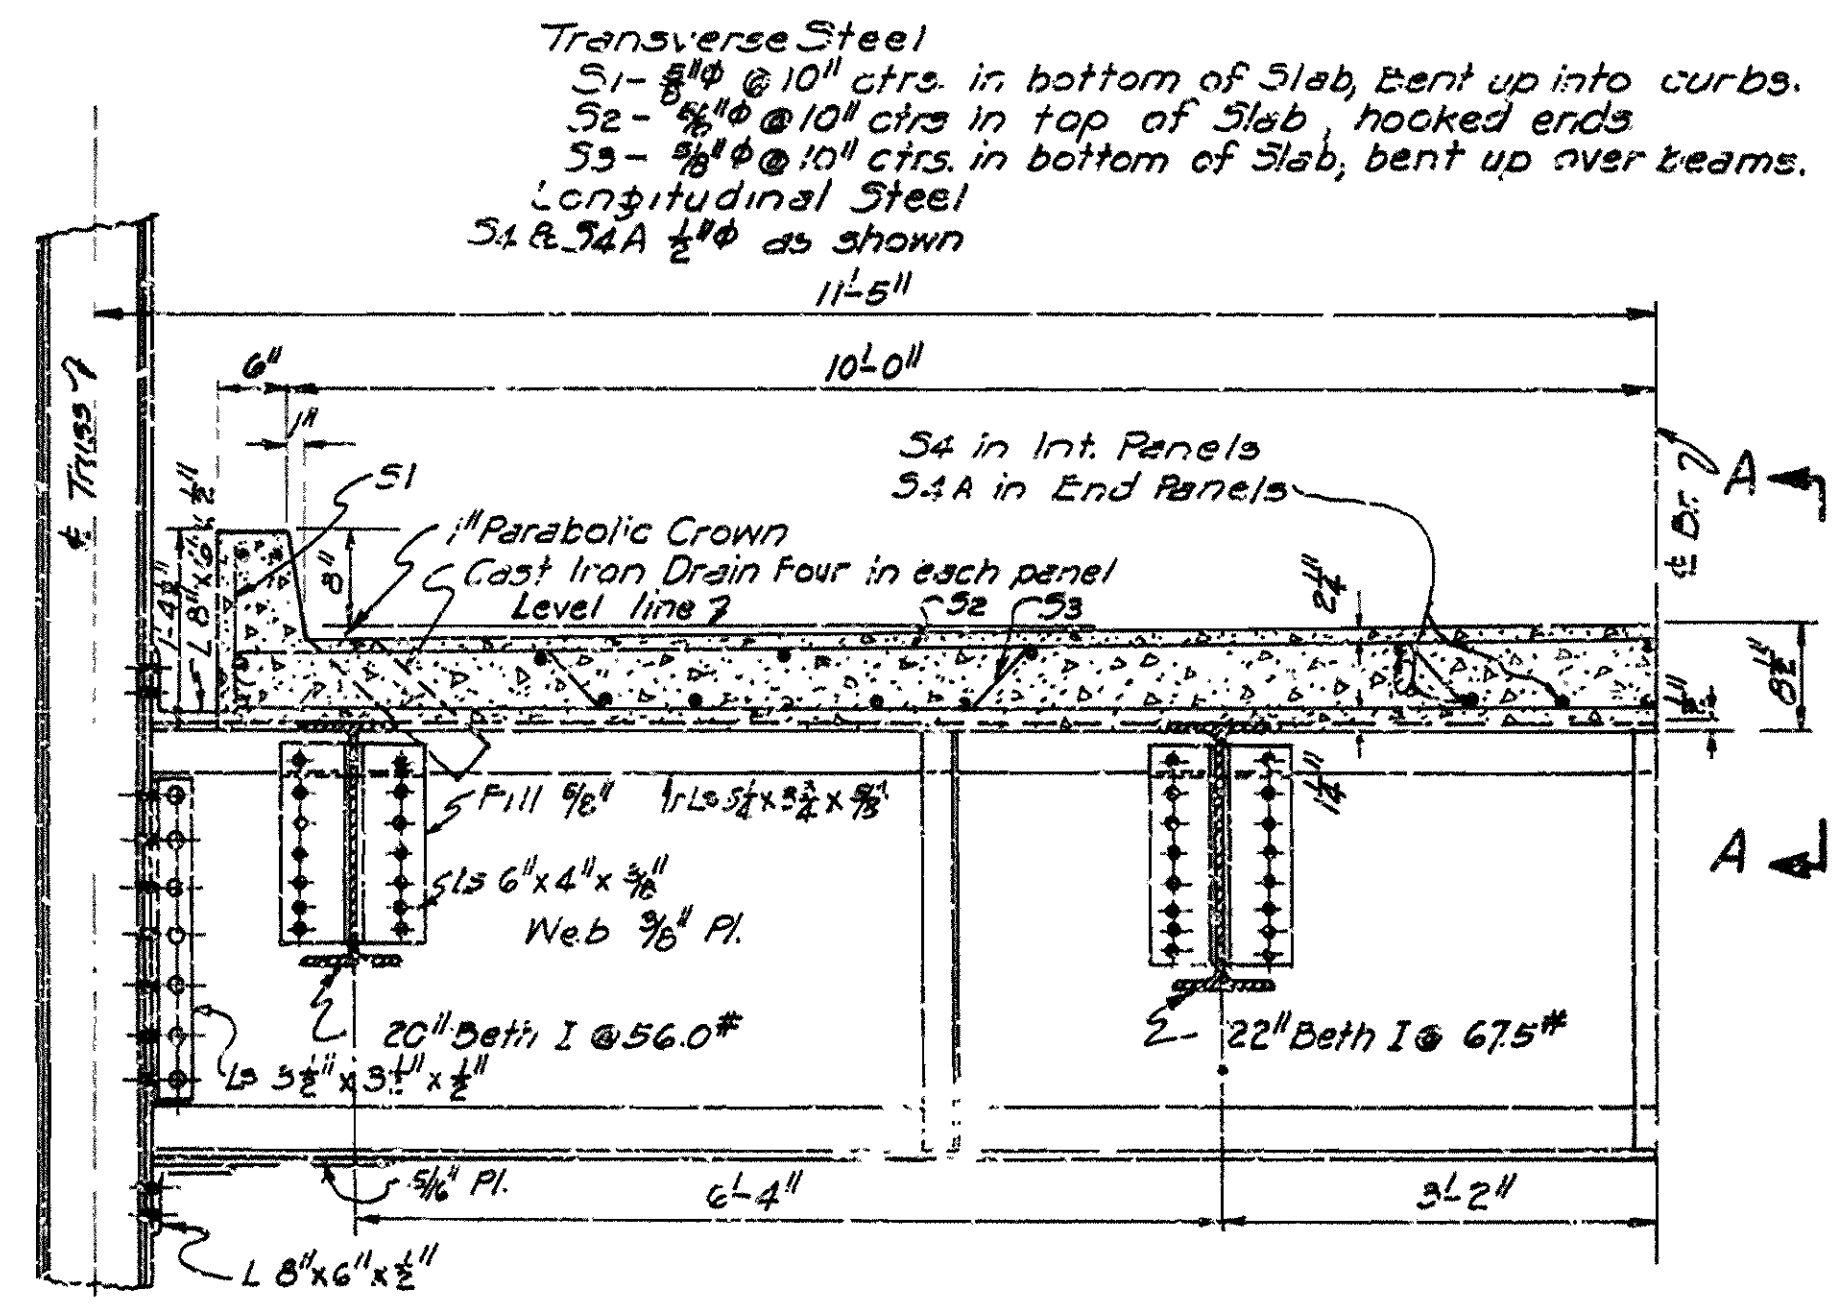 Transverse Steel
S1- 5/8"Φ @ 10" ctrs. in bottom of Slab, Bent up into curbs.
S2- 5/8"Φ @ 10" ctrs in top of Slab, hooked ends
S3- 5/8"Φ @ 10" ctrs. in bottom of Slab, bent up over beams.
Longitudinal Steel
S4 & S4A 1/2"Φ as shown
11'-5"
6"
10'-0"
1"
℄ Truss
S4 in Int. Panels
S4A in End Panels
℄ Br.
A
S1
1" Parabolic Crown
Cast Iron Drain Four in each panel
Level line
S2
S3
8"
1'-4 1/2"
L 8"x6"x 1/2"
2 1/4"
8 1/2"
1 1/4"
Fill 5/8"
Ls 6"x4"x 3/8"
Web 3/8" Pl.
A
20" Beth I @ 56.0#
22" Beth I @ 67.5#
5/16" Pl.
6'-4"
3'-2"
L 8"x6"x 1/2"